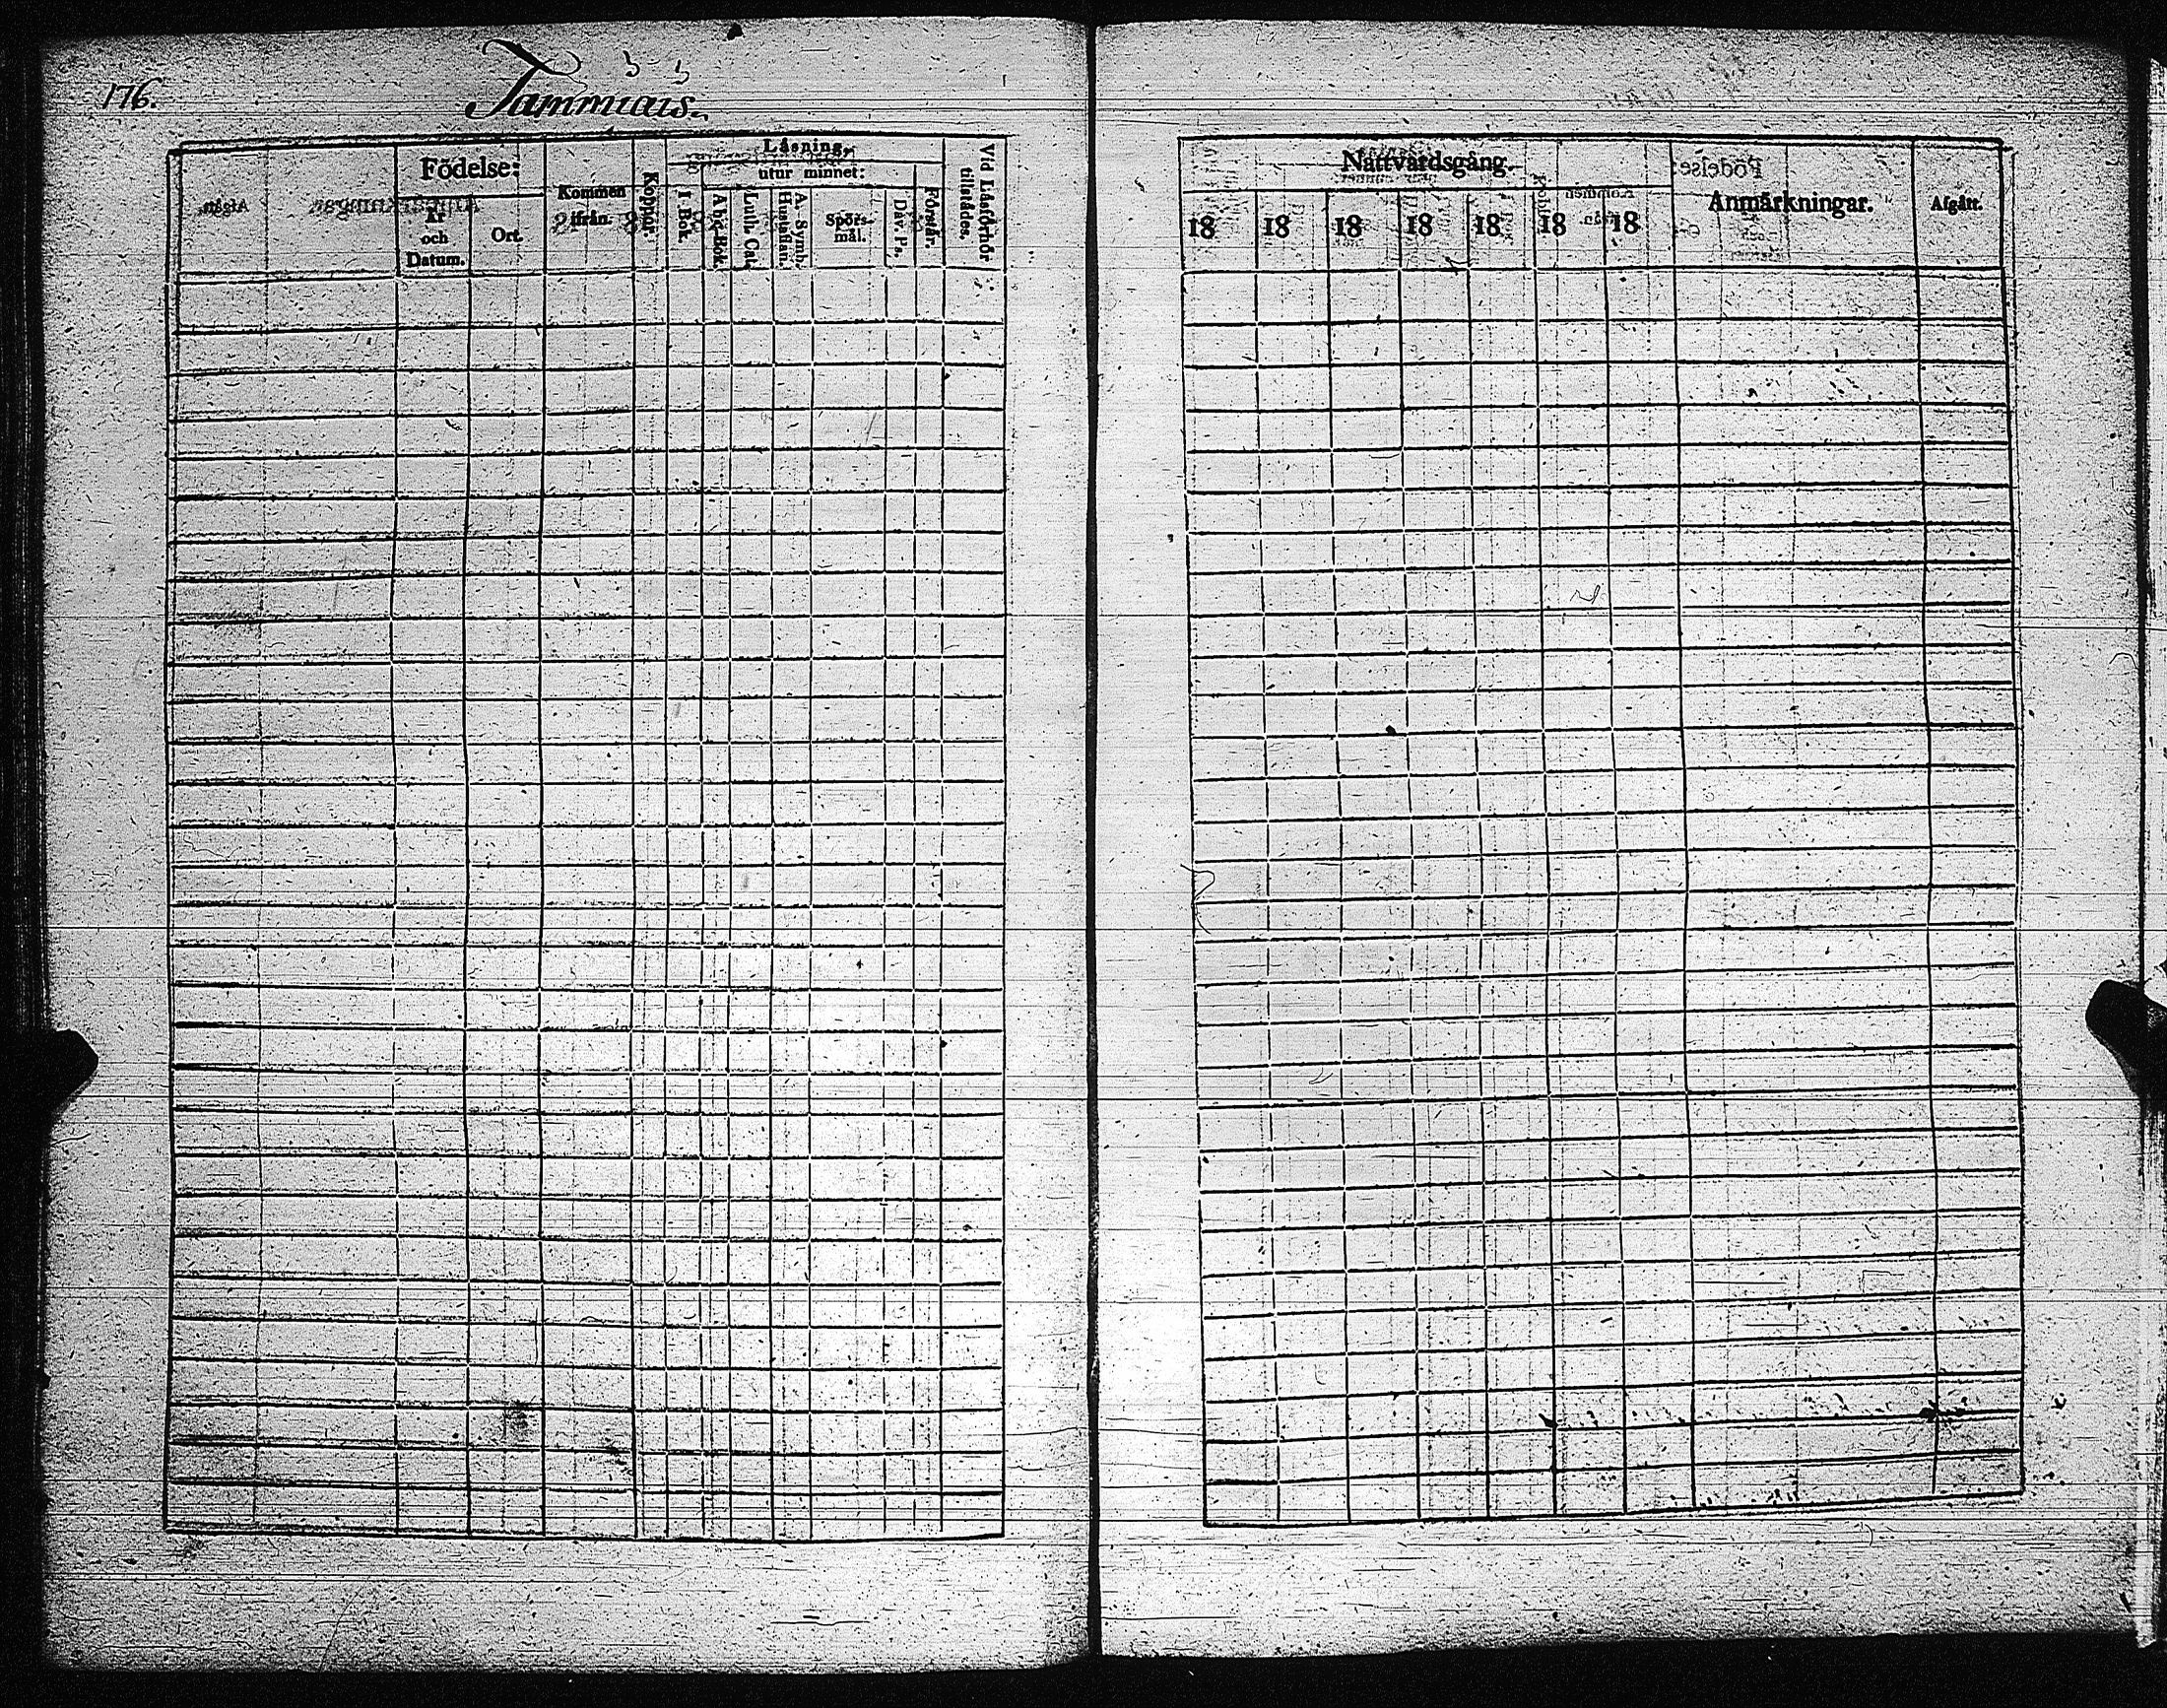 176.
Tammiais.
Födelse:
År och Datum.
Ort.
Kommen ifrån.
Koppor.
Läsning,
utur minnet:
I Bok.
Abc-Bok.
Luth. Cat.
A. Symb. Hustaflan.
Spörsmål.
Dav. Ps.
Förstår.
Vid Läsförhör tilstädes.
Nattvardsgång.
18 18 18 18 18 18 18
Anmärkningar.
Afgått.